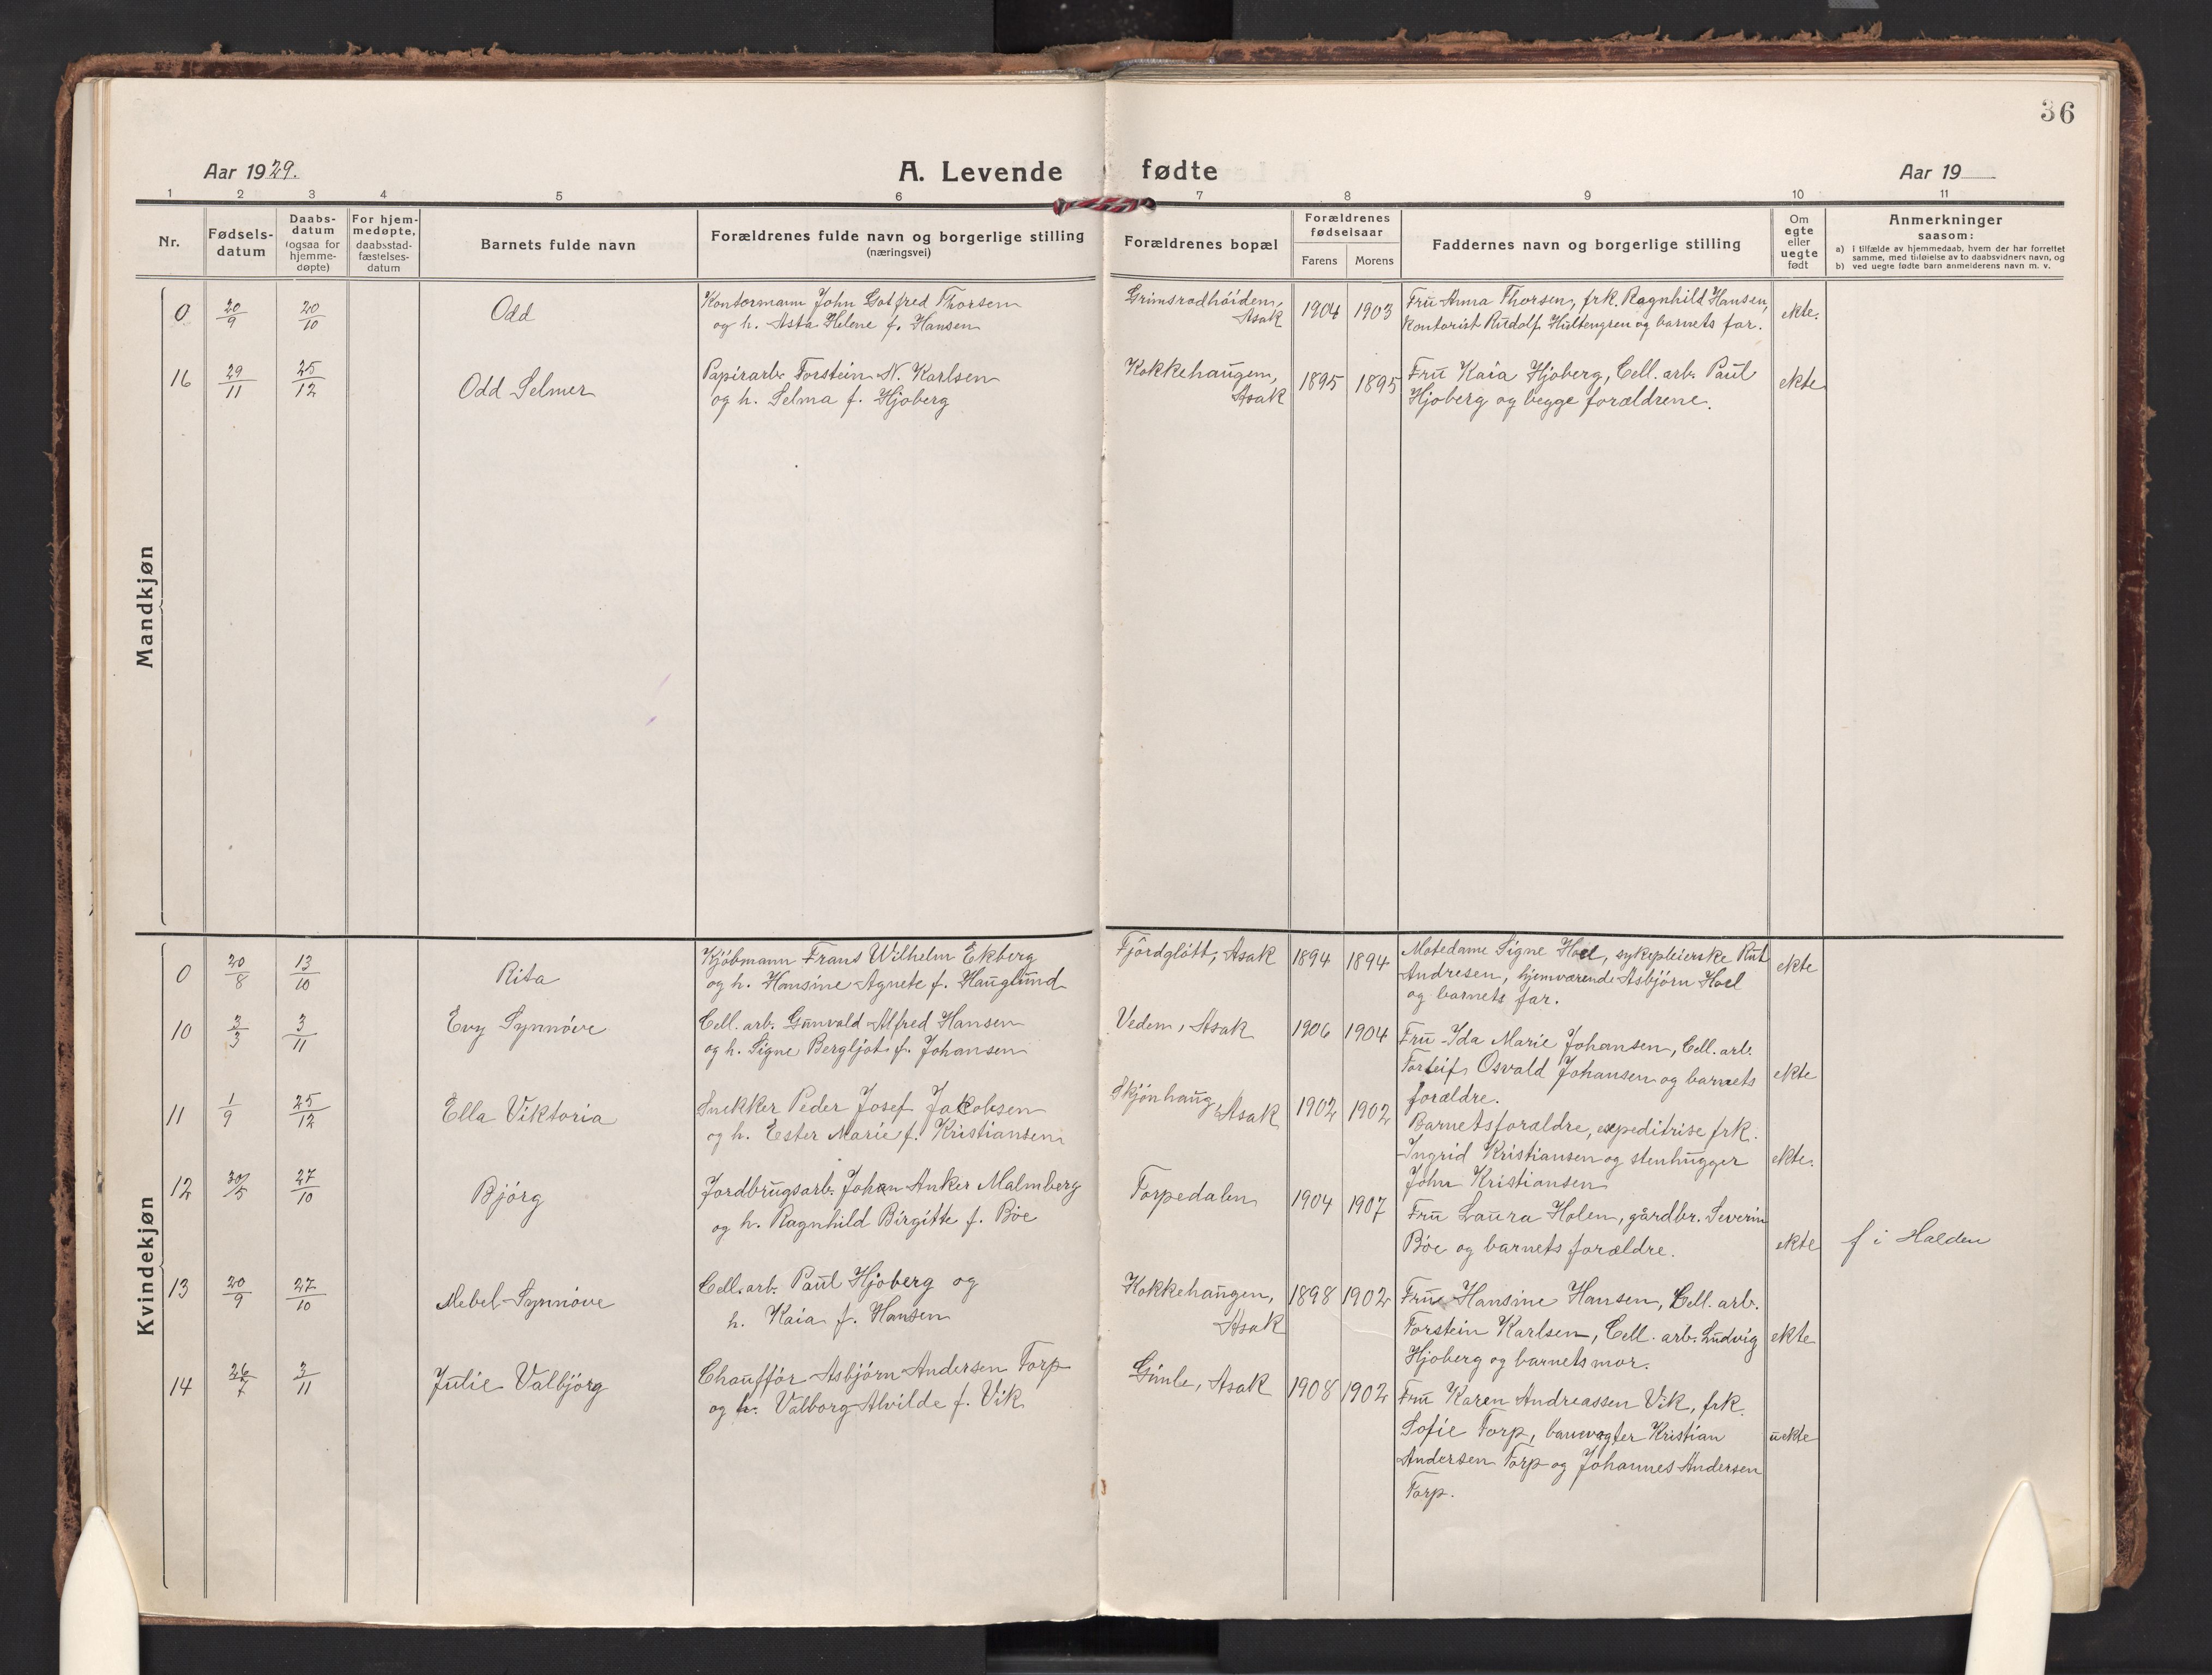 36
Aar 1929.
A. Levende fødte
Aar 19
1 2 3 4 5 6 7 8 9 10 11
Nr.
Fødsels-
datum
Daabs-
datum
(ogsaa for
hjemme-
døpte)
For hjem-
medøpte,
daabsstad-
fæstelses-
datum
Barnets fulde navn
Forældrenes fulde navn og borgerlige stilling
(næringsvei)
Forældrenes bopæl
Forældrenes
fødselsaar
Farens Morens
Faddernes navn og borgerlige stilling
Om
egte
eller
uegte
født
Anmerkninger
saasom:
a) i tilfælde av hjemmedaab, hvem der har forrettet
samme, med tilføielse av to daabsvidners navn, og
b) ved uegte fødte barn anmelderens navn m. v.
Mandkjøn
0 20/9 20/10 Odd
Kontormann John Gotfred Thorsen
og h. Asta Helene f. Hansen
Grimsrødhöiden,
Asak
1904 1903
Fru Anna Thorsen, frk. Ragnhild Hansen,
Kontorist Rudolf Hultengren og barnets far.
ekte.
16 29/11 25/12 Odd Selmer
Papirarb. Torstein N. Karlsen
og h. Selma f. Hjoberg
Kokkehaugen,
Asak
1895 1895
Fru Kaia Hjoberg, Cell. arb. Paul
Hjoberg og begge forældrene.
ekte
Kvindekjøn
0 20/8 13/10 Rita
Kjöbmann Frans Wilhelm Ekberg
og h. Hansine Agnete f. Hauglund
Fjordglött, Asak
1894 1894
Motedame Signe Hoel, sykepleierske Rut
Andresen, hjemværende Asbjörn Hoel
og barnets far.
ekte
10 3/3 3/11 Evy Synnöve
Cell. arb. Gunvald Alfred Hansen
og h. Signe Bergljot f. Johansen
Vedem, Asak
1906 1904
Fru Ida Marie Johansen, Cell. arb.
Torleif Osvald Johansen og barnets
forældre.
ekte
11 1/9 25/12 Ella Viktoria
Snekker Peder Josef Jakobsen
og h. Ester Marie f. Kristiansen
Skjönhaug, Asak
1902 1902
Barnets forældre, expeditrise frk.
Ingrid Kristiansen og stenhugger
John Kristiansen
ekte.
12 30/5 27/10 Bjórg
Jordbrugsarb. Johan Anker Malmberg
og h. Ragnhild Birgitte f. Böe
Torpedalen
1904 1907
Fru Laura Holen, gårdbr. Severin
Böe og barnets forældre.
ekte
f i Halden
13 20/9 27/10 Mebel Synnöve
Cell. arb. Paul Hjoberg og
h. Kaia f. Hansen
Kokkehaugen,
Asak
1898 1902
Frue Hansine Hansen, Cell. arb.
Torstein Karlsen, Cell. arb. Ludvig
Hjoberg og barnets mor.
ekte
14 26/7 3/11 Julie Valbjörg
Chauffór Asbjörn Andersen Torp
og h. Valborg Alvilde f. Vik
Gimle, Asak
1908 1902
Fru Karen Andreassen Vik, frk.
Sofie Torp, banevagter Kristian
Andersen Torp og Johannes Andersen
Torp.
uekte